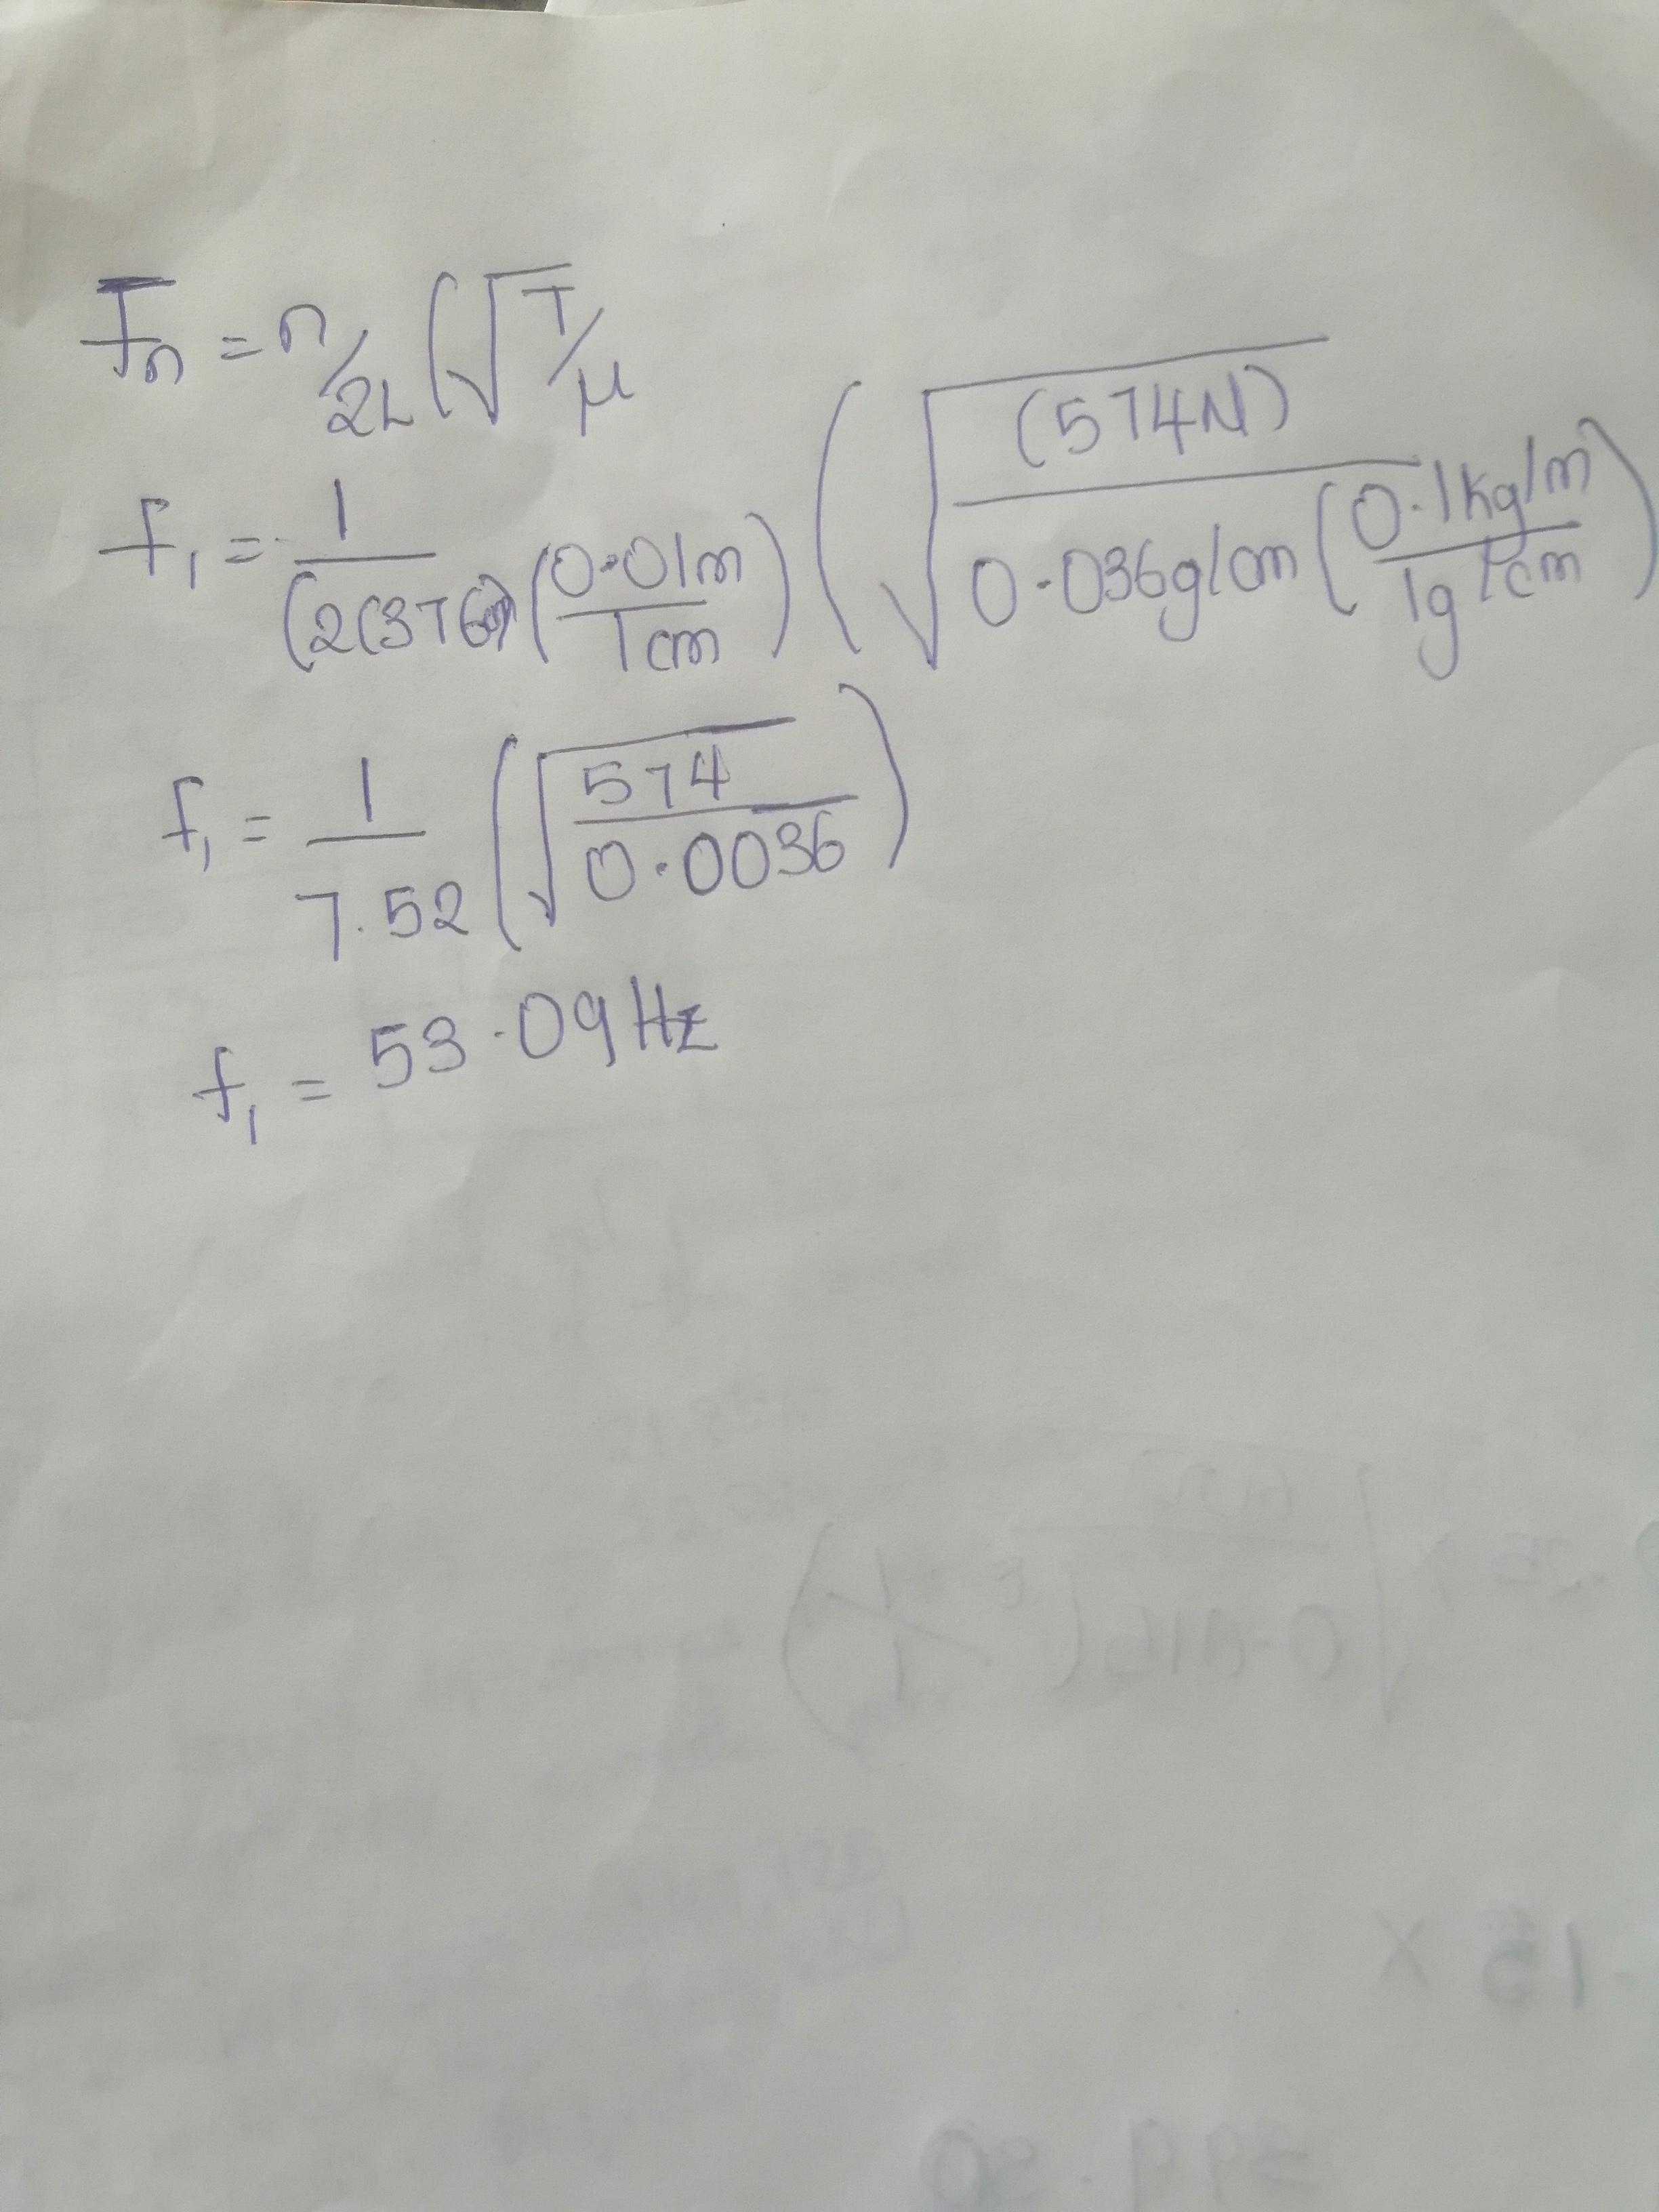 Fn = n/2L (√T/μ
f1 = 1/(2(376cm)(0.01m/1cm) (√(574N)/0.036g/cm(0.1kg/m/1g/1cm)
f1 = 1/7.52 (√574/0.0036)
f1 = 53.09Hz